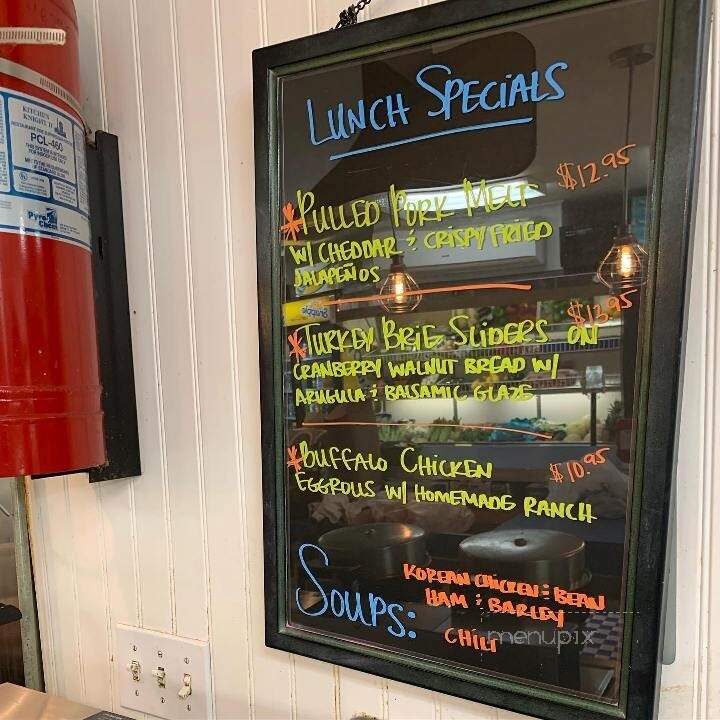 LUNCH SPECIALS
*PULLED PORK MELT $12.95
W/ CHEDDAR & CRISPY FRIED
JALAPEÑOS
*TURKEY BRIE SLIDERS ON $13.95
CRANBERRY WALNUT BREAD W/
ARUGULA & BALSAMIC GLAZE
*BUFFALO CHICKEN $10.95
EGGROLLS W/ HOMEMADE RANCH
SOUPS:
KOREAN CHICKEN & BEAN
HAM & BARLEY
CHILI
KITCHEN
KNIGHT II
PCL-460
Pyro
Chem
menupix